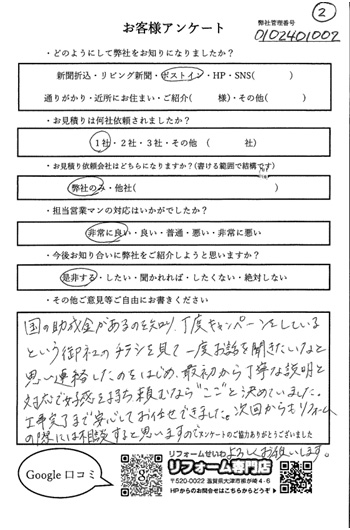 ②
弊社管理番号
0102401002
お客様アンケート
・どのようにして弊社をお知りになりましたか？
新聞折込・リビング新聞・ポストイン・HP・SNS(　　　)
通りがかり・近所にお住まい・ご紹介(　　　様)・その他(　　　)
・お見積りは何社依頼されましたか？
1社・2社・3社・その他　(　　　社)
・お見積り依頼会社はどちらになりますか？(書ける範囲で結構です)
弊社のみ・他社(　　　)
・担当営業マンの対応はいかがでしたか？
非常に良い・良い・普通・悪い・非常に悪い
・今後お知り合いに弊社をご紹介しようと思いますか？
是非する・したい・聞かれれば・したくない・絶対しない
・その他ご意見等ご自由にお書きください
国の助成金があるのを知り、丁度キャンペーンをしている
という御社のチラシを見て一度お話を聞きたいなと
思い連絡したのをはじめ、最初から丁寧な説明と
対応で好感を持ち頼むなら"ここ"と決めていました。
工事完了まで安心してお任せできました。次回からもリフォーム
の際には相談すると思いますので
よろしくお願いします。
アンケートのご協力ありがとうございました
Google 口コミ
リフォームせいわ
リフォーム専門店
〒520-0022 滋賀県大津市柳が崎4-6
HPからのお問合せはこちらからどうぞ